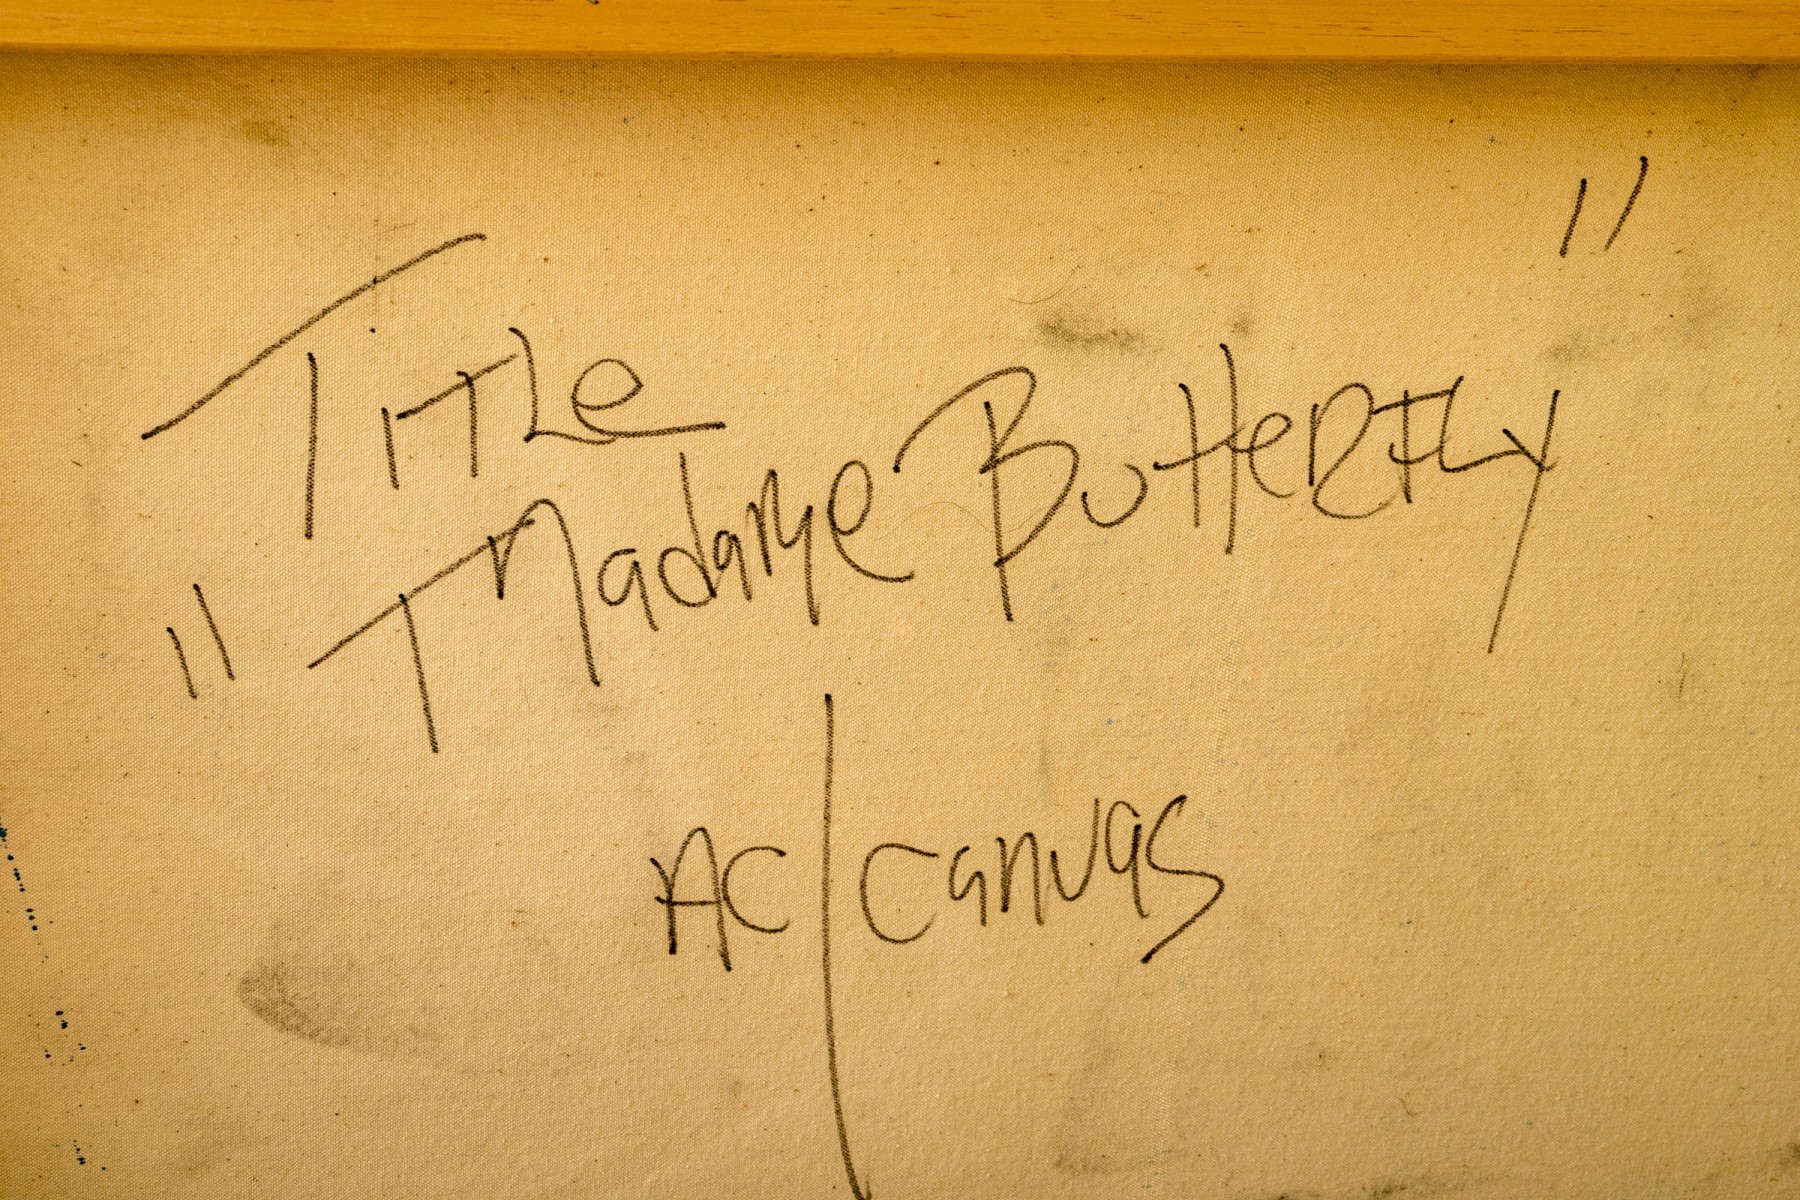 Title
"Madame Butterfly"
AC/Canvas